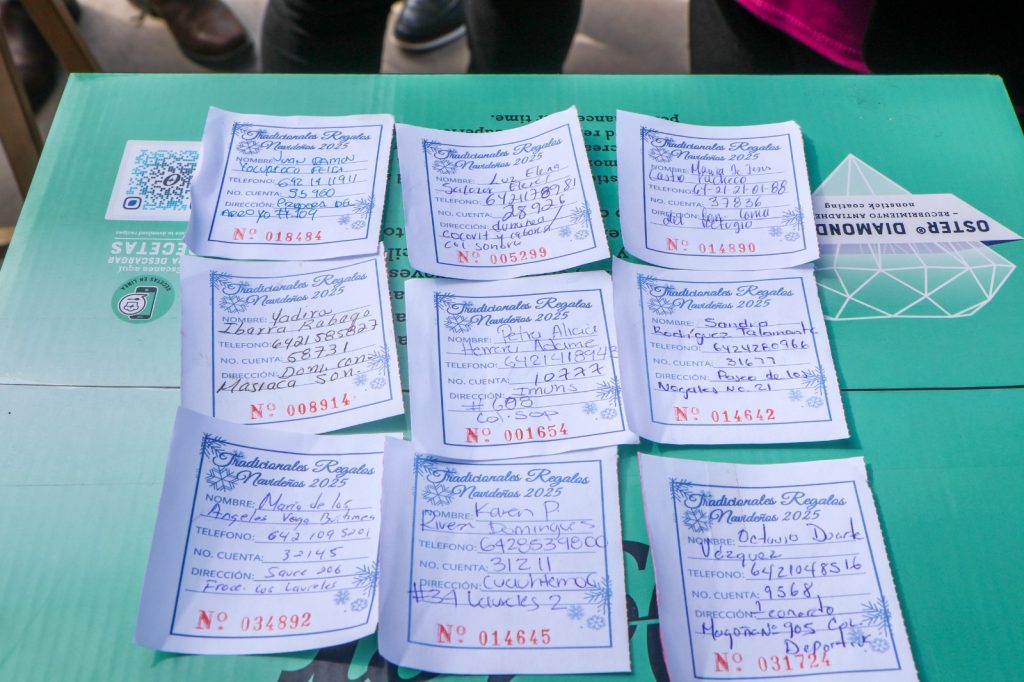 Tradicionales Regalos
Navideños 2025
NOMBRE: Juan Ramon
Yocupicio
TELEFONO: 642 1411911
NO. CUENTA: 55980
DIRECCIÓN:
Arroyo # 109
Nº 018484
Tradicionales Regalos
Navideños 2025
NOMBRE: Luz Elena
TELEFONO: 6421178981
NO. CUENTA: 28926
DIRECCIÓN:
Cocorit y
Col Sonora
Nº 005299
Tradicionales Regalos
Navideños 2025
NOMBRE: Maria De Jesus
Castro Pacheco
TELEFONO: 64-21-21-01-88
NO. CUENTA: 37836
DIRECCIÓN: Loma
del Refugio
Nº 014890
Tradicionales Regalos
Navideños 2025
NOMBRE: Yadira
Ibarra Rábago
TELEFONO: 6421585827
NO. CUENTA:
58731
DIRECCIÓN: Dom. Con.
Masiaca Son.
Nº 008914
Tradicionales Regalos
Navideños 2025
NOMBRE: Petra Alicia
Herrera Adame
TELEFONO: 6421418942
NO. CUENTA: 10777
DIRECCIÓN: Imuris
# 600
Col Sop
Nº 001654
Tradicionales Regalos
Navideños 2025
NOMBRE: Sandra
Rodríguez Talamante
TELEFONO: 6424280966
NO. CUENTA: 31677
DIRECCIÓN: Paseo de los
Nogales No. 21
Nº 014642
Tradicionales Regalos
Navideños 2025
NOMBRE: Maria de los
Angeles Vega Buitimea
TELEFONO: 642 1095201
NO. CUENTA: 32145
DIRECCIÓN: Sauce 206
Fracc. Los Laureles
Nº 034892
Tradicionales Regalos
Navideños 2025
NOMBRE: Karen P.
Rivera Domingues
TELEFONO: 6428539800
NO. CUENTA: 31211
DIRECCIÓN: Cuauhtemoc
#31 Laureles 2
Nº 014645
Tradicionales Regalos
Navideños 2025
NOMBRE: Octavio Duarte
Vázquez
TELEFONO: 6421048516
NO. CUENTA: 9568
DIRECCIÓN:
Magoña Nº 905 Col.
Deportiva
Nº 031724
OSTER® DIAMOND
– RECUBRIMIENTO ANTIADHE
nonstick coating
RECETAS
DESCARGAR
RECETAS EN LÍNEA